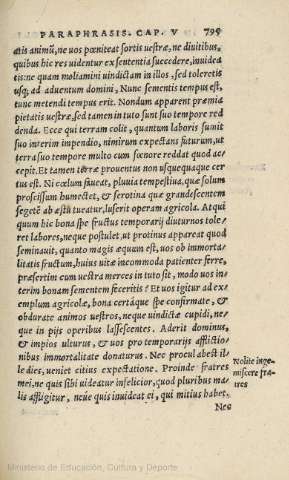 PARAPHRASIS. CAP. V 795
atis animũ, ne uos pœniteat sortis uestræ, ne diuitibus,
quibus hic res uidentur ex sententia succedere, inuidea
tis: ne quam moliamini uindictam in illos, sed toleretis
usq; ad aduentum domini, Nunc sementis tempus est,
tunc metendi tempus erit. Nondum apparent præmia
pietatis uestræ, sed tamen in tuto sunt suo tempore red
denda. Ecce qui terram colit, quantum laboris sumit
suo interim impendio, nimirum expectans futurum, ut
terra suo tempore multo cum fœnore reddat quod ac/
cepit. Et tamen terræ prouentus non usquequaque cer
tus est. Ni cœlum faueat, pluuia tempestiua, quæ solum
proscissum humectet, & serotina quæ grandescentem
segetẽ ab æstu tueatur, luserit operam agricola. Atqui
quum hic bona spe fructus temporarij diuturnos tole/
ret labores, neque postulet, ut protinus appareat quod
seminauit, quanto magis æquum est, uos ob immorta/
litatis fructum, huius uitæ incommoda patienter ferre,
præsertim cum uestra merces in tuto sit, modo uos in/
terim bonam sementem feceritis? Et uos igitur ad ex/
emplum agricolæ, bona certáque spe confirmate, &
obdurate animos uestros, neque uindictæ cupidi, ne/
que in pijs operibus lassescentes. Aderit dominus,
& impios ulturus, & uos pro temporarijs afflictio/
nibus immortalitate donaturus. Nec procul abest il/
le dies, ueniet citius expectatione. Proinde fratres
mei, ne quis sibi uideatur infelicior, quod pluribus ma/
lis affligitur, néue quis inuideat ei, qui mitius habet,
Nec
Nolite inge
miscere fra/
tres
Ministerio de Educación, Cultura y Deporte